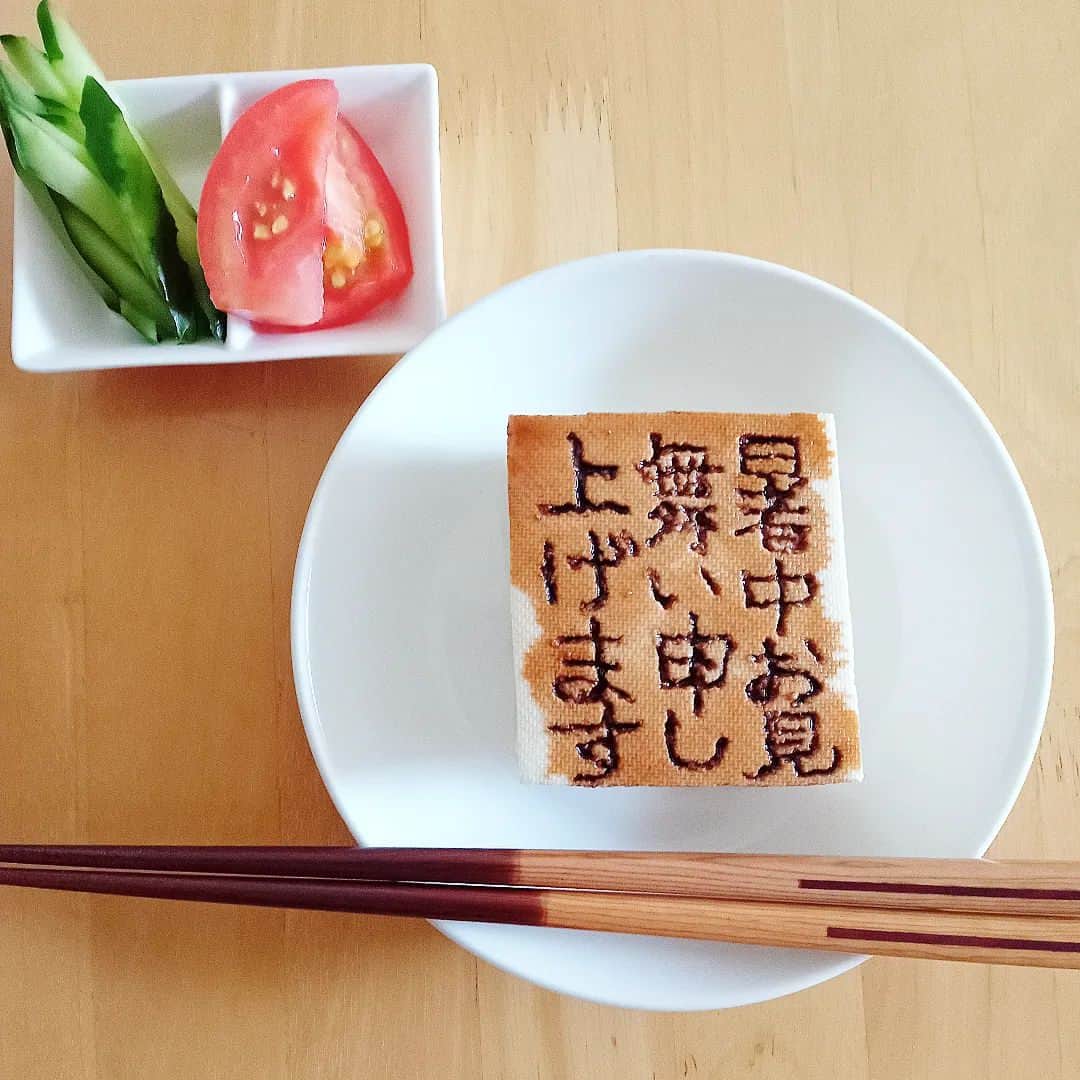 暑中お見
舞い申し
上げます